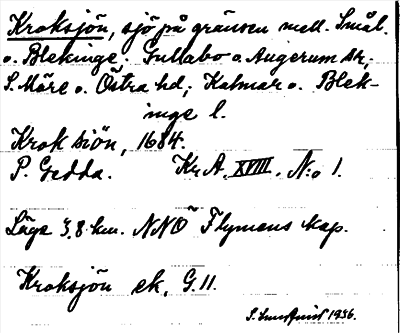 Kroksjön, sjö på gränsen mell. Smål.
o. Blekinge. Gullabo o. Augerum skr;
S. Möre o. Östra hd; Kalmar o. Blek-
inge l.
Krok Siön, 1684.
P. Gedda. Kr. A. XVIII. N:o 1.
Läge 3,8 km. NNÖ Flymens kap.
Kroksjön ek. G. 11.
S. 1936.